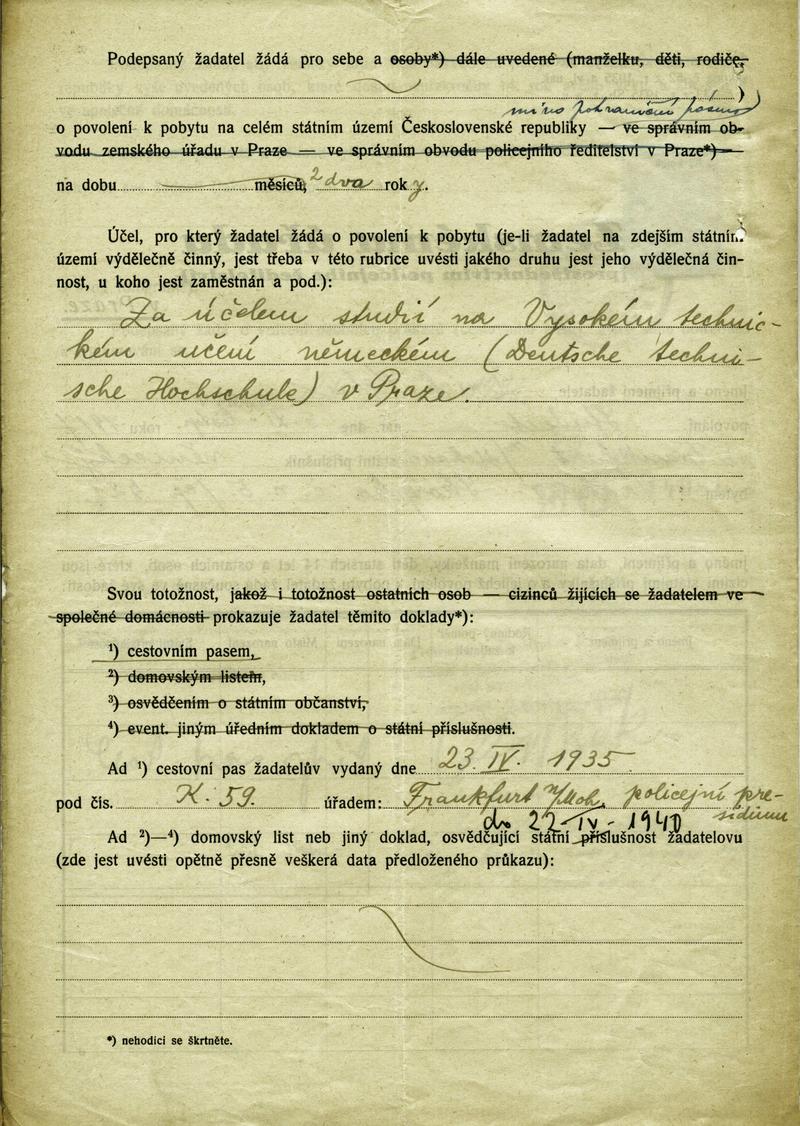 Podepsaný žadatel žádá pro sebe a osoby*) dále uvedené (manželku, děti, rodiče,
)
mimo pohraniční pásmo
o povolení k pobytu na celém státním území Československé republiky — ve správním ob-
vodu zemského úřadu v Praze — ve správním obvodu policejního ředitelství v Praze*) —
na dobu měsíců, 2 dva rok y.
Účel, pro který žadatel žádá o povolení k pobytu (je-li žadatel na zdejším státním
území výdělečně činný, jest třeba v této rubrice uvésti jakého druhu jest jeho výdělečná čin-
nost, u koho jest zaměstnán a pod.):
Za účelem studií na Vysokém technic-
kém učení německém (Deutsche techni-
sche Hochschule) v Praze.
Svou totožnost, jakož i totožnost ostatních osob — cizinců žijících se žadatelem ve
společné domácnosti prokazuje žadatel těmito doklady*):
¹) cestovním pasem,
²) domovským listem,
³) osvědčením o státním občanství,
⁴) event. jiným úředním dokladem o státní příslušnosti.
Ad ¹) cestovní pas žadatelův vydaný dne 23. IV. 1935
pod čís. K. 59. úřadem: Frankfurt policejní pre-
sidium
do 22-IV-1940
Ad ²)—⁴) domovský list neb jiný doklad, osvědčující státní příslušnost žadatelovu
(zde jest uvésti opětně přesně veškerá data předloženého průkazu):
*) nehodící se škrtněte.